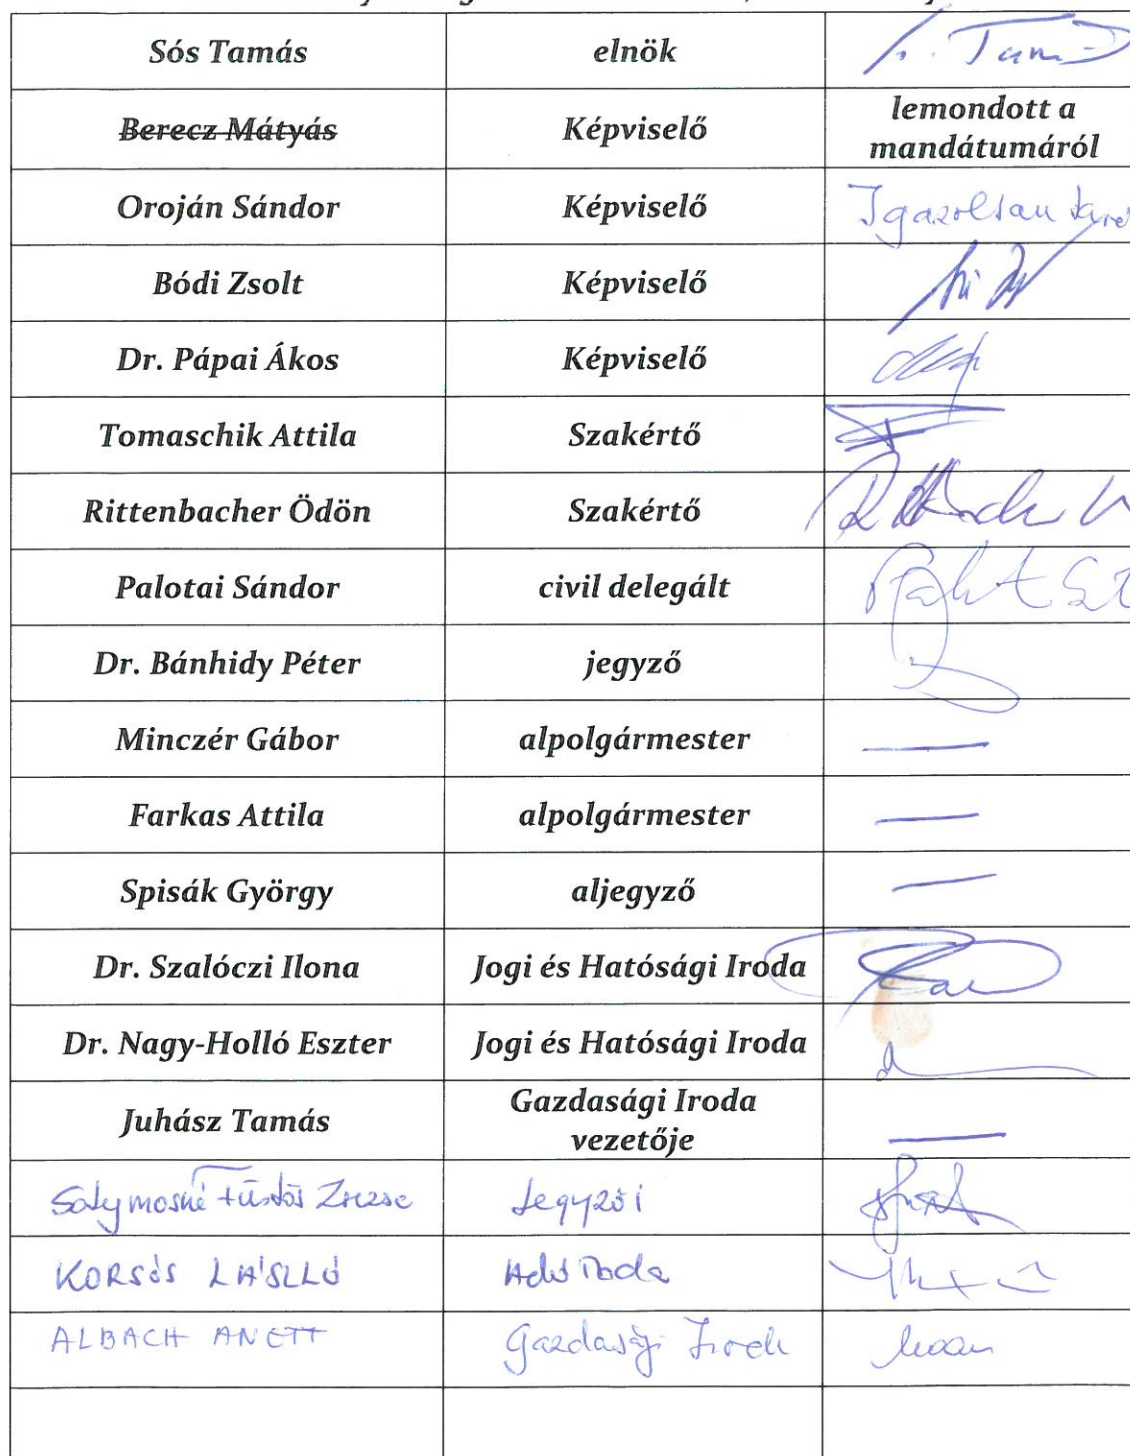 Sós Tamás elnök
Berecz Mátyás Képviselő lemondott a
mandátumáról
Oroján Sándor Képviselő Igazoltan
Bódi Zsolt Képviselő
Dr. Pápai Ákos Képviselő
Tomaschik Attila Szakértő
Rittenbacher Ödön Szakértő
Palotai Sándor civil delegált
Dr. Bánhidy Péter jegyző
Minczér Gábor alpolgármester
Farkas Attila alpolgármester
Spisák György aljegyző
Dr. Szalóczi Ilona Jogi és Hatósági Iroda
Dr. Nagy-Holló Eszter Jogi és Hatósági Iroda
Juhász Tamás Gazdasági Iroda
vezetője
Jegyzői
KORSÓS LÁSZLÓ Adó Iroda
ALBACH ANETT Gazdasági Iroda